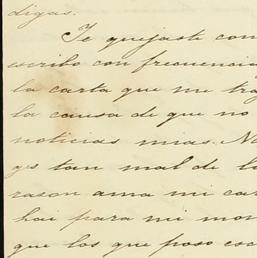 digas.
Te quejaste con
escribo con frecuencia
la carta que me tra
la causa de que no
noticias mias. No
es tan mal de la
razon ama mi car
hai para mi mon
que los que paso esc